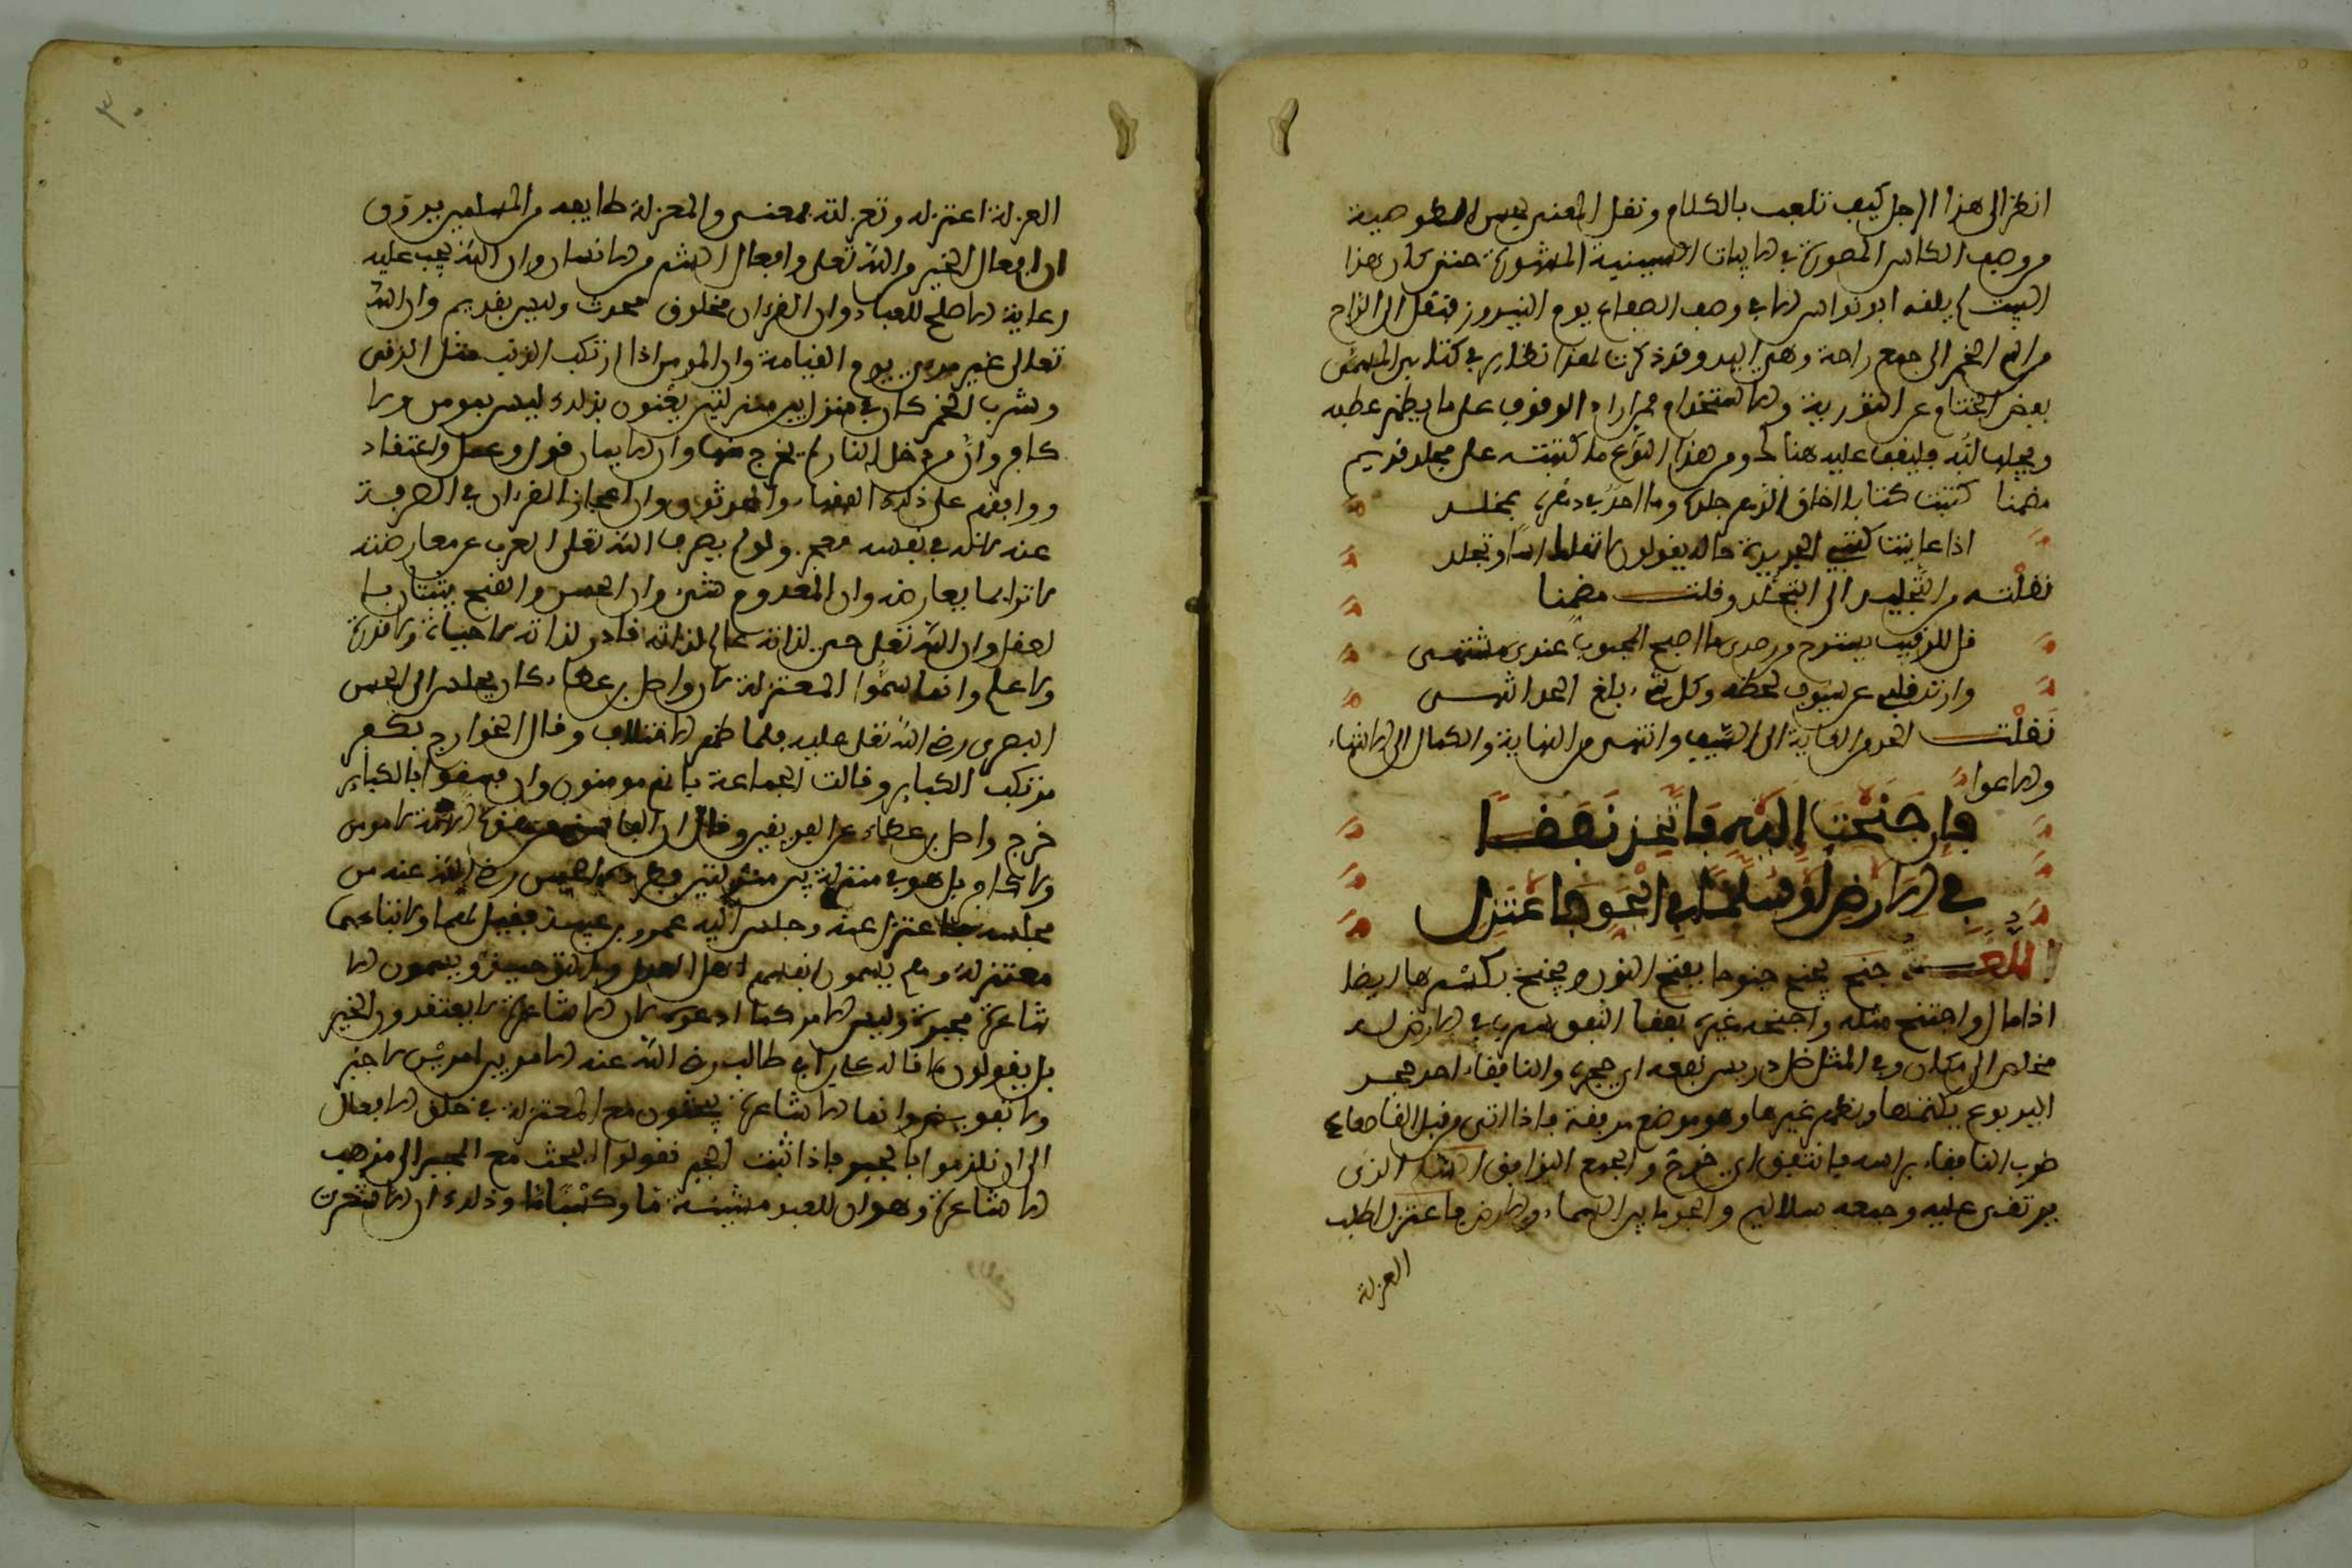 انظر الى هذا الرجل كيف تلعب بالكلام ونقل المعنى من الخصوصية
من وصف الكاس المصورة في الابيات السينية المشهورة حتى كان هذا
البيت لم يقله ابو نواس الا في وصف الصفاع يوم النيروز فنقل الراح
من اسم الخمر الى جمع راحة وهي اليد وقد ذكرت لهذا نظاير في كتابي المسمى
بفض الختام عن التورية والاستخدام فمن اراد الوقوف على ما يظهر عطبه
ومن هذا النوع ما كتبته على مجلد قديم
مضمنا كتبت كتابا اخلق الدهر جلده وما احد في دهره بمخلد
اذا عاينت كتبي الجديدة حاله يقولون لا تهلك اسا وتجلد
نقلته من التجليد الى التجلد وقلت مضمنا
قل للرقيب يسترح من رصدي ما اصبح المحبوب عندي مشتهى
وارتد قلبي عن سيوف لحظه وكل شيء بلغ الحد انتهى
نقلت الحد من الغاية الى السيف وانتهى من النهاية والكمال الى الانتهاء
والاعوا
فَإن جَنَحْتَ إِلَيْهِ فَاتَّخِذْ نَفَقًا
في الارض أو سُلَّمًا في الجَوِّ فَاعْتَزِلِ
اللغة جنح يجنح جنوحا بفتح النون ويجنح بكسرها ايضا
اذا مال واجتنح مثله واجنحه غيره نفقا النفق سرب في الارض له
مخلص الى مكان وفي المثل ضل دريص نفقه اي جحره والنافقاء احد جحر
اليربوع يكتمها ويظهر غيرها وهو موضع يرققه فاذا اتي من قبل القاصعاء
ضرب النافقاء براسه فانتفق اي خرج والجمع النوافق السلم الذي
يرتقى عليه وجمعه سلاليم والجو ما بين السماء والارض فاعتزل اطلب
العزلة
٣٠
العزلة اعتزله وتعزلته بمعنى والمعتزلة طايفة من المسلمين يرون
ان افعال الخير من الله تعلى وافعال الشر من الانسان وان الله يجب عليه
رعاية الاصلح للعباد وان القرءان مخلوق محدث وليس بقديم وان الله
تعالى غير مرءي يوم القيامة وان المومن اذا ارتكب الذنب مثل الزنى
وشرب الخمر كان في منزلة بين منزلتين يعنون بذلك ليس بمومن ولا
كافر وان من دخل النار لم يخرج منها وان الايمان قول وعمل واعتقاد
ووافقهم على ذلك الفقهاء والمحدثون وان اعجاز القرءان في الصرفة
عنه لا انه في نفسه معجز ولو لم يصرف الله تعلى العرب عن معارضته
لاتوا بما يعارضه وان المعدوم شيء وان الحسن والقبح يثبتان با
لعقل وان الله تعلى حي لذاته عالم لذاته قادر لذاته لا بحياة ولا قدرة
ولا علم وانما سموا المعتزلة لان واصل بن عطاء كان يجلس الى الحسن
البصري رضي الله تعلى عليه فلما ظهر الاختلاف وقال الخوارج بكفر
مرتكب الكباير وقالت الجماعة بانهم مومنون وان فسقوا بالكباير
خرج واصل بن عطاء عن الفريقين وقال ان الفاسق من هذه الامة لا مومن
ولا كافر بل هو في منزلة بين منزلتين فطرده الحسن رضي الله عنه من
مجلسه فاعتزل عنه وجلس اليه عمرو بن عبيد فقيل لهما ولاتباعهما
معتزلة وهم يسمون انفسهم اهل العدل والتوحيد ويسمون الا
شاعرة مجبرة وليس الامر كما ادعوه لان الاشاعرة لا يعتقدون الجبر
بل يقولون ما قاله علي بن ابي طالب رضي الله عنه الامر بين امرين لا جبر
ولا تفويض وانما الاشاعرة يبحثون مع المعتزلة في خلق الافعال
الى ان يلزموا بالجبر فاذا ثبت الجبر نقلوا البحث مع المجبر الى مذهب
الاشاعرة وهو ان للعبد مشيئة ما وكسبا ما وذلك ان الاشعرية